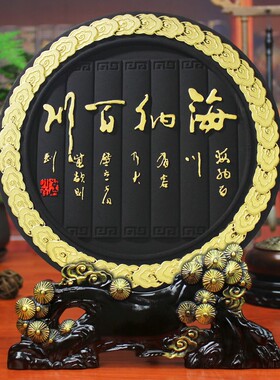 海纳百川
海纳百
川
有容
乃大
壁立千仞
無欲則
刚